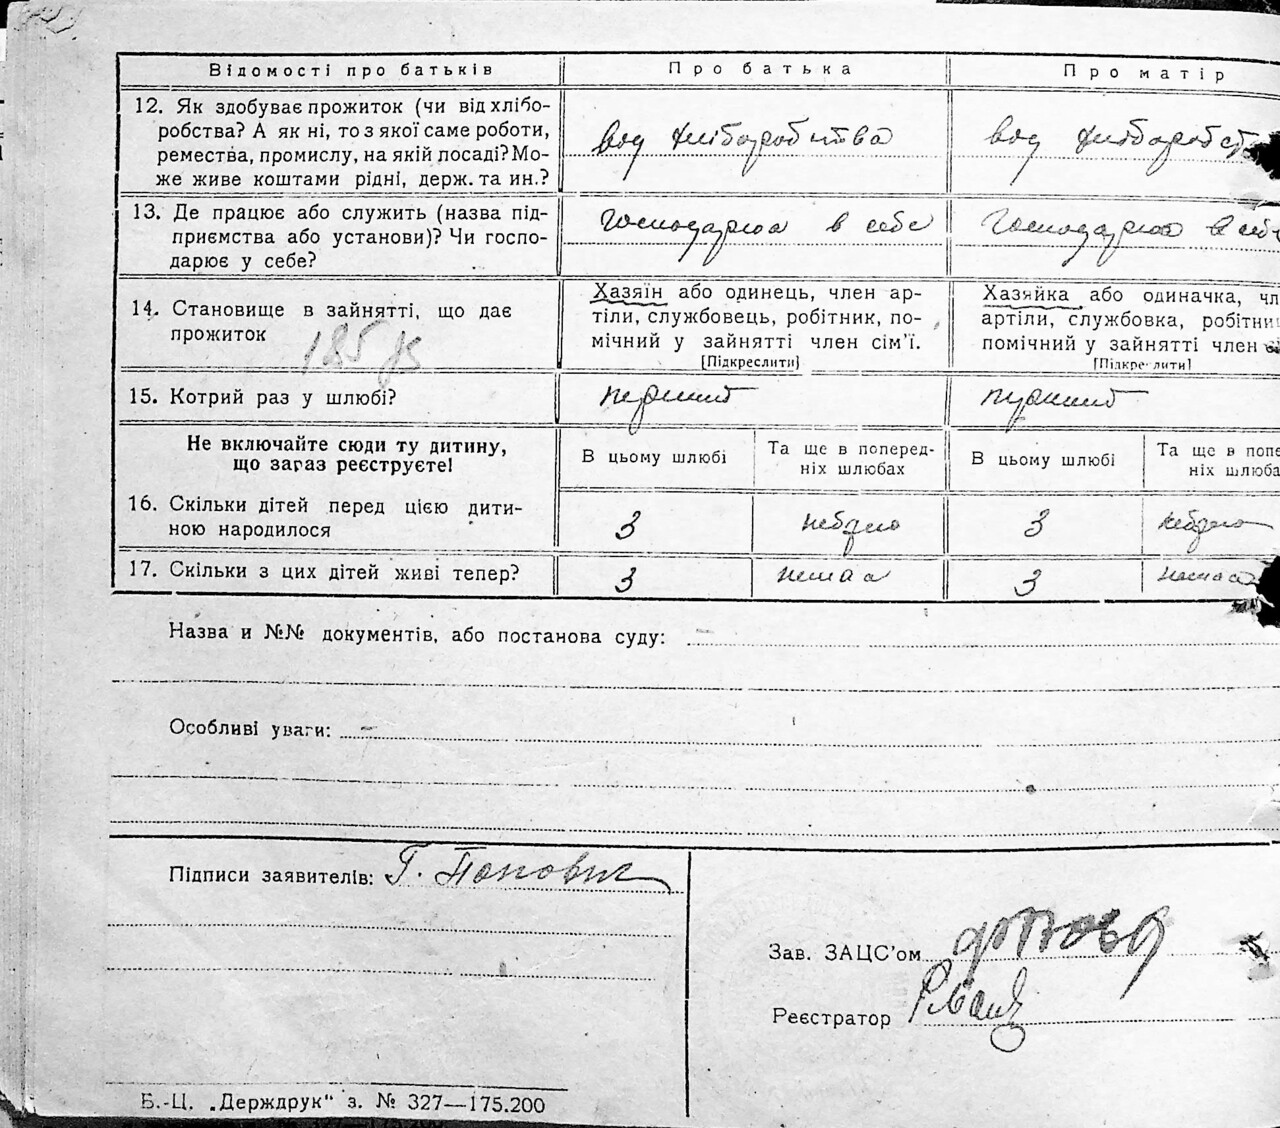 Відомості про батьків Про батька Про матір
12. Як здобуває прожиток (чи від хлібо-
робства? А як ні, то з якої саме роботи,
ремества, промислу, на якій посаді? Мо-
же живе коштами рідні, держ. та ин.?
вод хліборобства вод хліборобст
13. Де працює або служить (назва під-
приємства або установи)? Чи госпо-
дарює у себе?
господарюа в себе господарюа в себе
14. Становище в зайнятті, що дає
прожиток
185
Хазяїн або одинець, член ар-
тіли, службовець, робітник, по-
мічний у зайнятті член сім'ї.
[Підкреслити]
Хазяйка або одиначка, чл
артіли, службовка, робітни
помічний у зайнятті член
[Підкреслити]
15. Котрий раз у шлюбі? перший перший
Не включайте сюди ту дитину,
що загаз реєструєте!
В цьому шлюбі Та ще в поперед-
ніх шлюбах В цьому шлюбі Та ще в попе
ніх шлюба
16. Скільки дітей перед цією дити-
ною народилося
3 небуло 3 небуло
17. Скільки з цих дітей живі тепер? 3 немаа 3 немаа
Назва и №№ документів, або постанова суду: —
Особливі уваги: –
Підписи заявителів: Г. Попович
Зав. ЗАЦС'ом
Реєстратор
Б.-Ц. „Держдрук" з. № 327—175.200